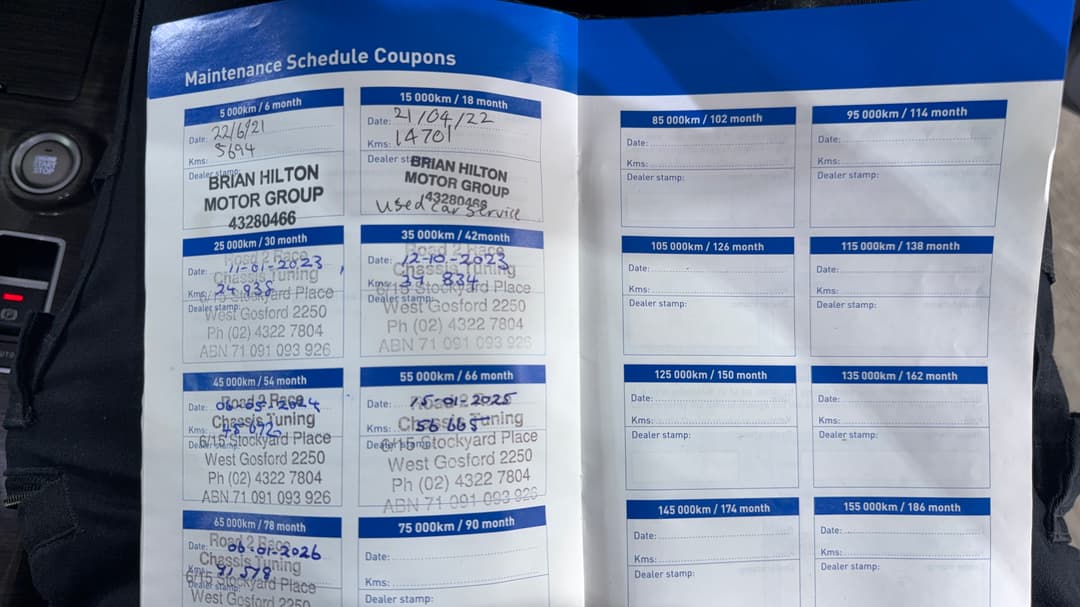 Maintenance Schedule Coupons
5 000km / 6 month
Date: 22/6/21
Kms: 5694
Dealer stamp:
BRIAN HILTON
MOTOR GROUP
43280466
15 000km / 18 month
Date: 21/04/22
Kms: 14701
Dealer stamp:
BRIAN HILTON
MOTOR GROUP
43280466
Used Car Service
25 000km / 30 month
Road 2 Race
Date: 11-01-2023
Chassis Tuning
Kms: 24 938
6/15 Stockyard Place
Dealer stamp:
West Gosford 2250
Ph (02) 4322 7804
ABN 71 091 093 926
35 000km / 42month
Road 2 Race
Date: 12-10-2023
Chassis Tuning
Kms: 834
6/15 Stockyard Place
Dealer stamp:
West Gosford 2250
Ph (02) 4322 7804
ABN 71 091 093 926
45 000km / 54 month
Road 2 Race
Date: 06-05-2024
Chassis Tuning
Kms:
6/15 Stockyard Place
Dealer stamp:
West Gosford 2250
Ph (02) 4322 7804
ABN 71 091 093 926
55 000km / 66 month
Road 2 Race
Date: 15-01-2025
Chassis Tuning
Kms: 56 665
6/15 Stockyard Place
Dealer stamp:
West Gosford 2250
Ph (02) 4322 7804
ABN 71 091 093 926
65 000km / 78 month
Road 2 Race
Date: 06-01-2026
Chassis Tuning
Kms: 71,578
6/15 Stockyard Place
Dealer stamp:
West Gosford 2250
75 000km / 90 month
Date:
Kms:
Dealer stamp:
85 000km / 102 month
Date:
Kms:
Dealer stamp:
95 000km / 114 month
Date:
Kms:
Dealer stamp:
105 000km / 126 month
Date:
Kms:
Dealer stamp:
115 000km / 138 month
Date:
Kms:
Dealer stamp:
125 000km / 150 month
Date:
Kms:
Dealer stamp:
135 000km / 162 month
Date:
Kms:
Dealer stamp:
145 000km / 174 month
Date:
Kms:
Dealer stamp:
155 000km / 186 month
Date:
Kms:
Dealer stamp: